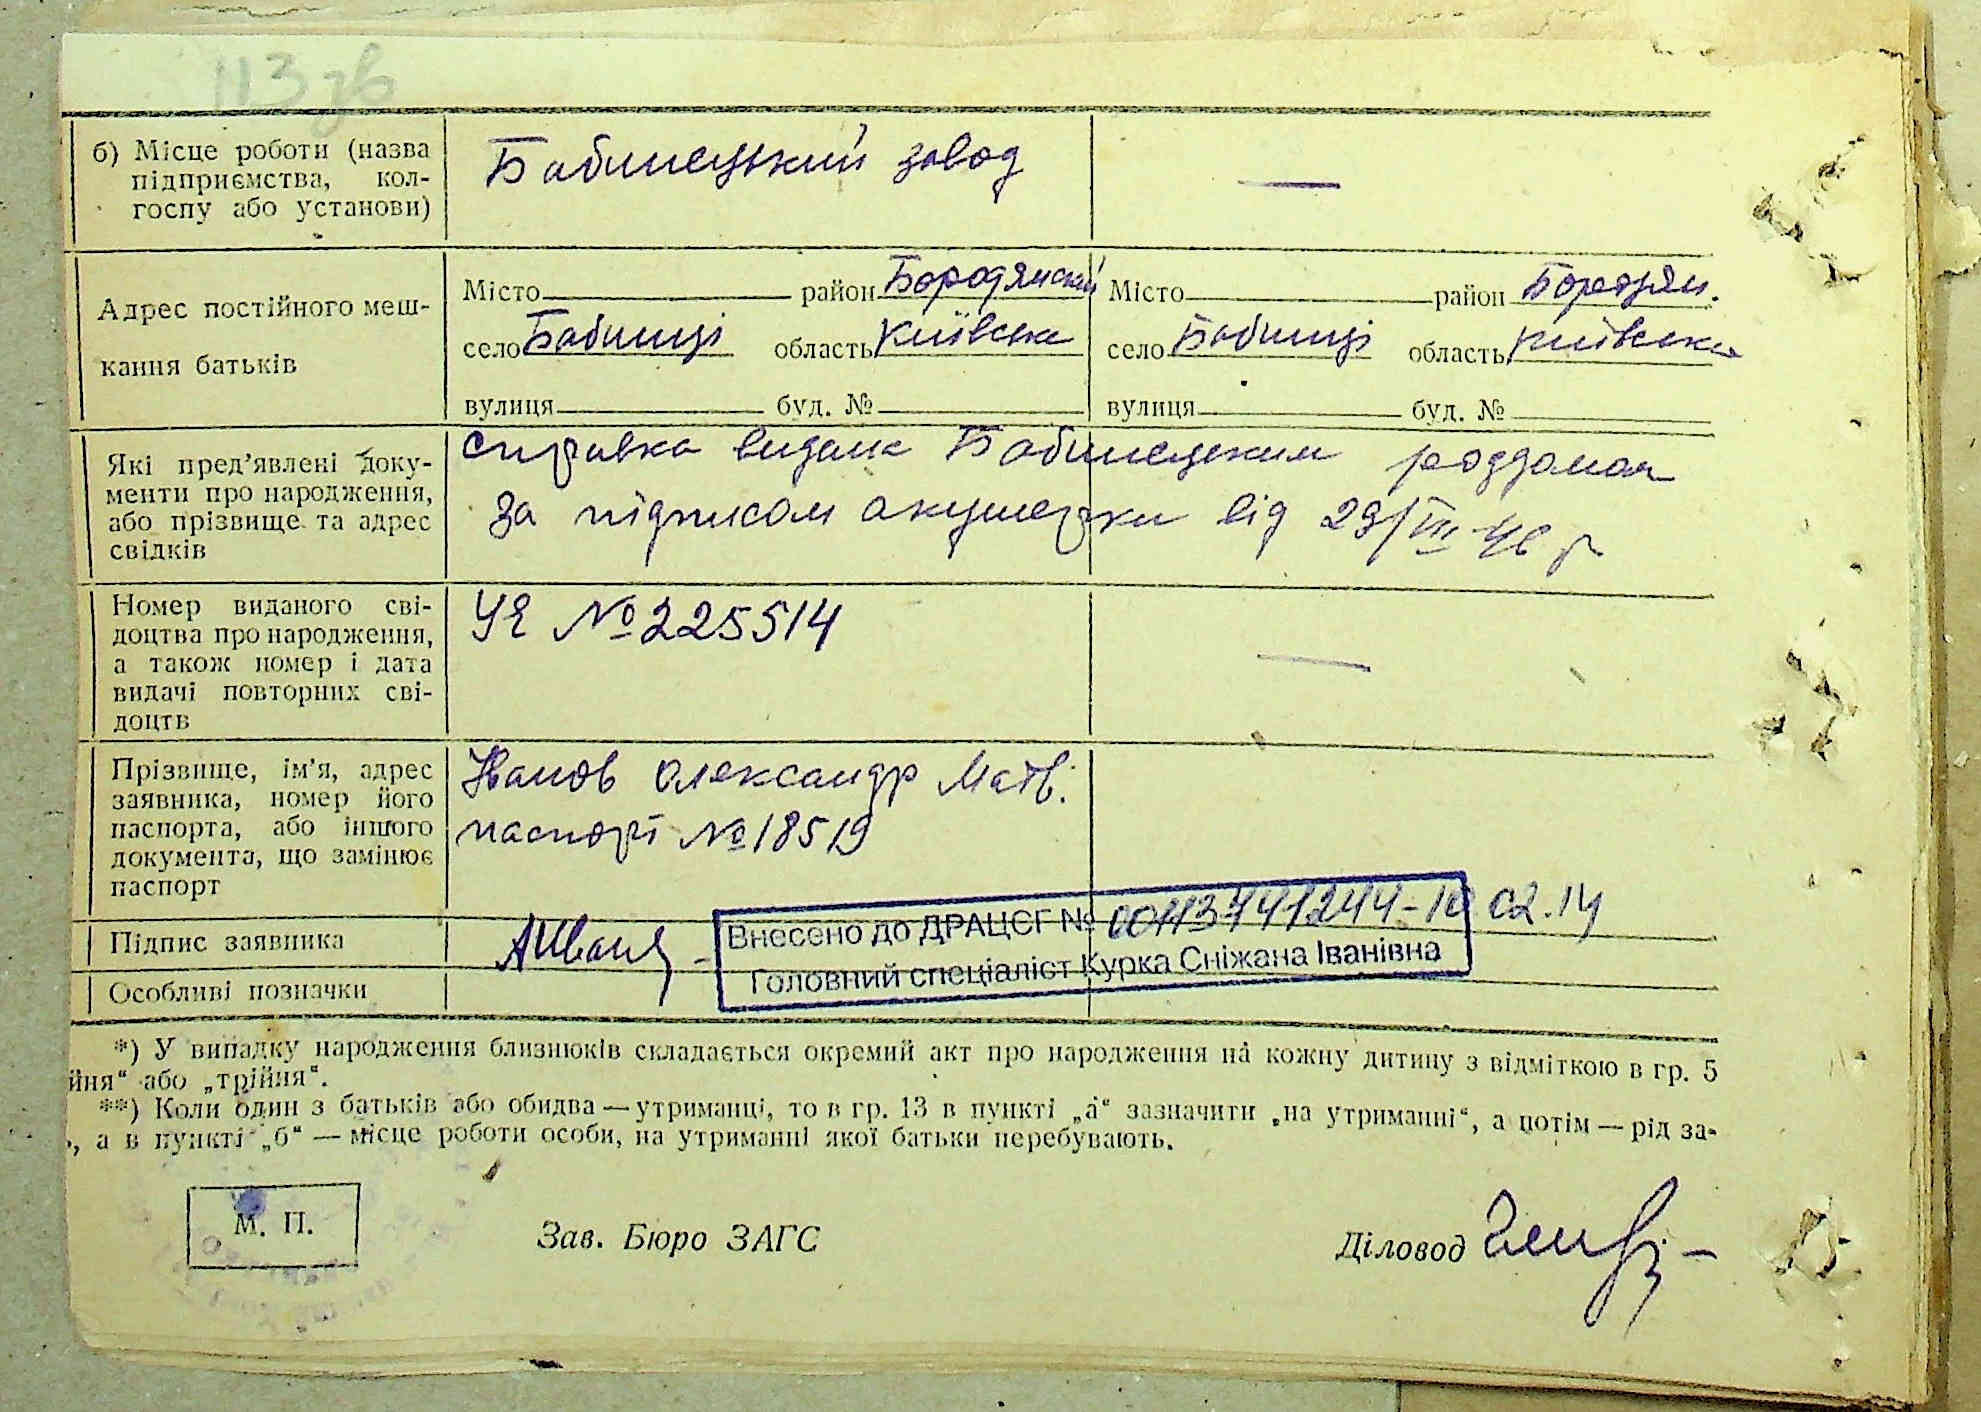 113 зв
б) Місце роботи (назва
підприємства, кол-
госпу або установи)
Бабинецький завод
—
Адрес постійного меш-
кання батьків
Місто район Бородянский Місто район Бородян.
село Бабинці область Київська село Бабинці область Київська
вулиця буд. № вулиця буд. №
Які пред’явлені доку-
менти про народження,
або прізвище та адрес
свідків
справка видана Бабинецким роддомом
за підписом акушерки від 29/III 46 р
Номер виданого сві-
доцтва про народження,
а також номер і дата
видачі повторних сві-
доцтв
УЯ №225514
—
Прізвище, ім’я, адрес
заявника, номер його
паспорта, або іншого
документа, що замінює
паспорт
Иванов Олександр Матв.
паспорт №18519
Підпис заявника
Внесено до ДРАЦСГ № 00113741244-10 02.14
Головний спеціаліст Курка Сніжана Іванівна
Особливі позначки
*) У випадку народження близнюків складається окремий акт про народження на кожну дитину з відміткою в гр. 5
йня“ або „трійня“.
**) Коли один з батьків або обидва — утриманці, то в гр. 13 в пункті „а“ зазначити „на утриманні“, а потім — рід за-
, а в пункті „б“ — місце роботи особи, на утриманні якої батьки перебувають.
М. П.
Зав. Бюро ЗАГС
Діловод